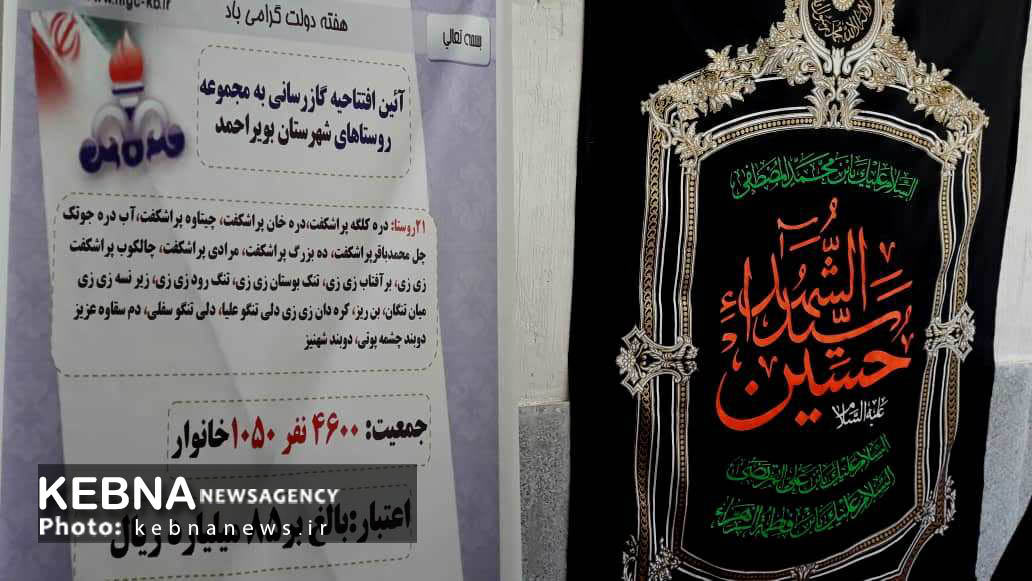 www.nigc-kb.ir
هفته دولت گرامی باد
بسمه تعالي
آئین افتتاحیه گازرسانی به مجموعه
روستاهای شهرستان بویراحمد
۲۱روستا: دره کلگه پراشکفت،دره خان پراشکفت، چیتاوه پراشکفت،آب دره جونک
جل محمدباقرپراشکفت، ده بزرگ پراشکفت، مرادی پراشکفت، چالکوب پراشکفت
زی زی، برآفتاب زی زی، تنگ بوستان زی زی، تنگ رود زی زی، زیر نسه زی زی
میان تنگان، بن ریز، کره دان زی زی دلی تنگو علیا، دلی تنگو سفلی، دم سقاوه عزیز
دوبند چشمه پوتی، دوبند شهنیز
جمعیت: ۴۶۰۰ نفر ۱۰۵۰خانوار
اعتبار:بالغ بر۸۵۰میلیارد ریال
KEBNA NEWSAGENCY
Photo: kebnanews.ir
السلام علیك یابن محمد المصطفی
سید الشهداء
حسین
علیه السلام
السلام علیك یابن علی المرتضی
السلام علیك یابن فاطمة الزهراء